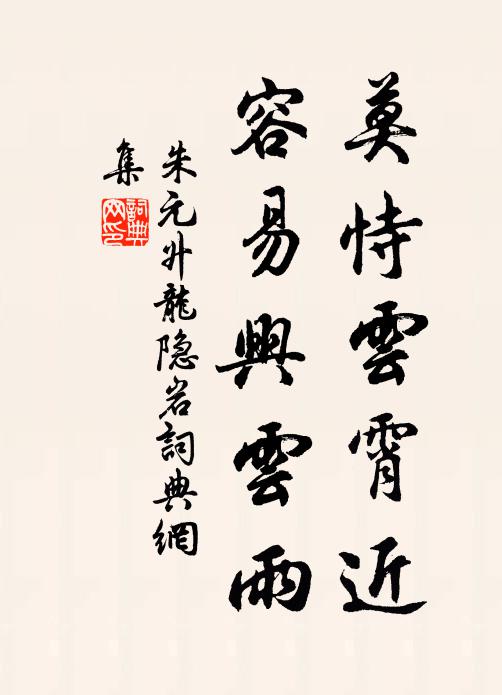 莫恃雲霄近
容易興雲雨
朱元外龍隐岩詞典網
集
詞典網印